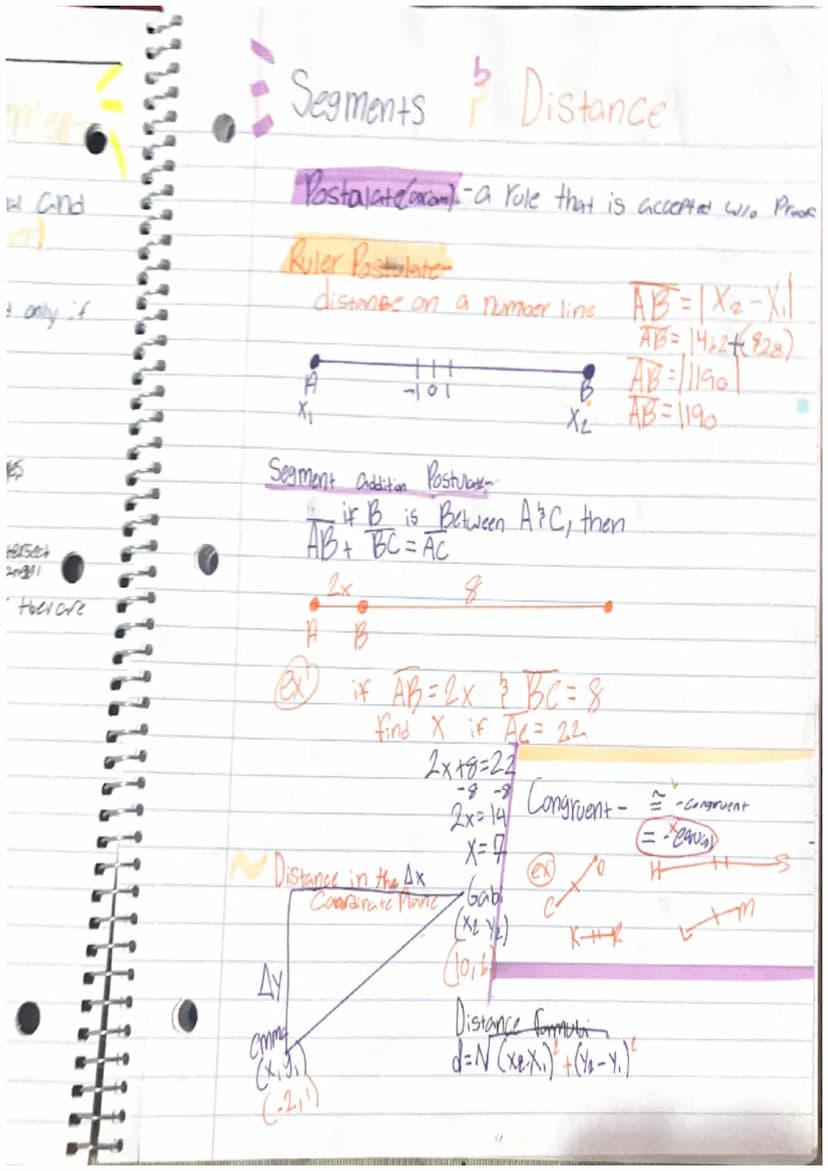 and
only if
Segments & Distance
Postalate(axiom) - a rule that is accepted w/o Proof
Ruler Postulate-
distance on a number line
AB = |X₂ - X₁|
AB =
AB = |1190|
AB = 1190
A -1 0 1 B
X₁ X₂
Segment addition Postulate-
if B is Between A & C, then
AB + BC = AC
2x 8
A B
ex if AB = 2x & BC = 8
find X if AC = 22
2x+8=22
-8 -8
2x=14
X=7
Congruent - ≅ -congruent
= -equal
ex
H S
C O
K R
L M
Distance in the
Coordinate Plane
Δx
Gabi
(X₂ Y₂)
(10,6)
Δy
emma
(X₁Y₁)
(-2,1)
Distance formula
d=√(x₂-X₁)²+(Y₂-Y₁)²
they are